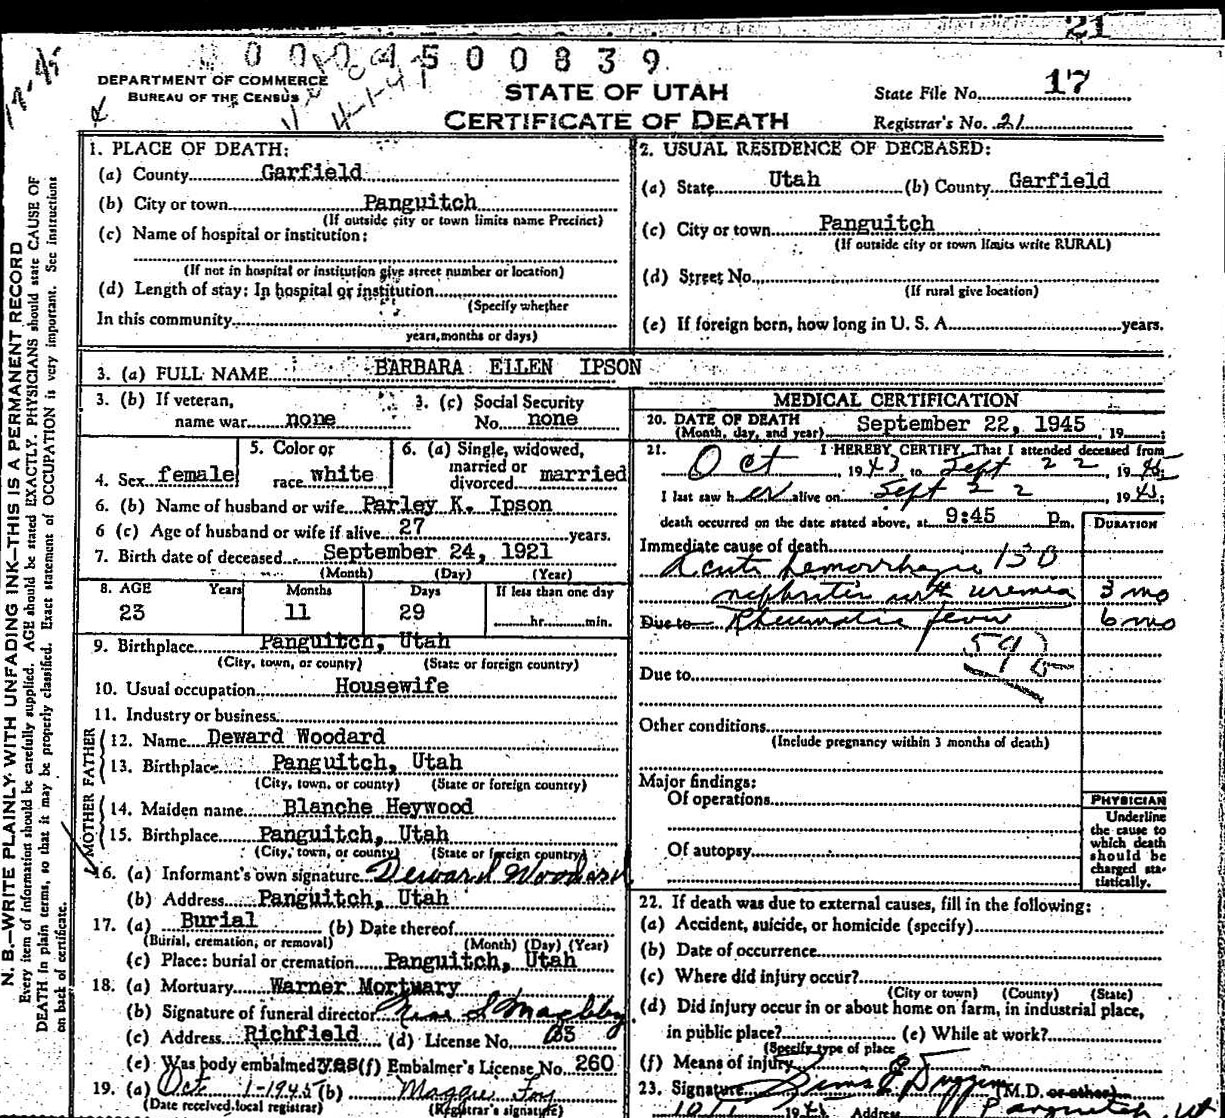 21
0004500839
17-45
4-1-47
DEPARTMENT OF COMMERCE
BUREAU OF THE CENSUS
STATE OF UTAH
CERTIFICATE OF DEATH
State File No. 17
Registrar's No. 21
N. B.—WRITE PLAINLY WITH UNFADING INK—THIS IS A PERMANENT RECORD
Every item of information should be carefully supplied. AGE should be stated EXACTLY. PHYSICIANS should state CAUSE OF
DEATH in plain terms, so that it may be properly classified. Exact statement of OCCUPATION is very important. See instructions
on back of certificate.
1. PLACE OF DEATH:
(a) County Garfield
(b) City or town Panguitch
(If outside city or town limits name Precinct)
(c) Name of hospital or institution:
(If not in hospital or institution give street number or location)
(d) Length of stay: In hospital or institution
(Specify whether
In this community
years, months or days)
2. USUAL RESIDENCE OF DECEASED:
(a) State Utah (b) County Garfield
(c) City or town Panguitch
(If outside city or town limits write RURAL)
(d) Street No.
(If rural give location)
(e) If foreign born, how long in U. S. A. years.
3. (a) FULL NAME BARBARA ELLEN IPSON
3. (b) If veteran, 3. (c) Social Security
name war none No. none
4. Sex female 5. Color or race white 6. (a) Single, widowed, married or divorced married
6. (b) Name of husband or wife Parley K. Ipson
6 (c) Age of husband or wife if alive 27 years.
7. Birth date of deceased September 24, 1921
(Month) (Day) (Year)
8. AGE Years Months Days If less than one day
23 11 29 hr. min.
9. Birthplace Panguitch, Utah
(City, town, or county) (State or foreign country)
10. Usual occupation Housewife
11. Industry or business
FATHER
12. Name Deward Woodard
13. Birthplace Panguitch, Utah
(City, town, or county) (State or foreign country)
MOTHER
14. Maiden name Blanche Heywood
15. Birthplace Panguitch, Utah
(City, town, or county) (State or foreign country)
16. (a) Informant's own signature Deward Woodard
(b) Address Panguitch, Utah
17. (a) Burial (b) Date thereof
(Burial, cremation, or removal) (Month) (Day) (Year)
(c) Place: burial or cremation Panguitch, Utah
18. (a) Mortuary Warner Mortuary
(b) Signature of funeral director
(c) Address Richfield (d) License No.
(e) Was body embalmed yes (f) Embalmer's License No. 260
19. (a) Oct 1-1945 (b) Maggie Foy
(Date received local registrar) (Registrar's signature)
MEDICAL CERTIFICATION
20. DATE OF DEATH September 22, 1945, 19 ;
(Month, day, and year)
21. I HEREBY CERTIFY, That I attended deceased from
Oct 1943 to Sept 22, 1945
I last saw her alive on Sept 22, 1945;
death occurred on the date stated above, at 9:45 Pm. DURATION
Immediate cause of death
acute hemorrhagic 130
nephritis with uremia 3 mo
Due to Rheumatic fever 6 mo
Due to
Other conditions
(Include pregnancy within 3 months of death)
Major findings:
Of operations
Of autopsy
PHYSICIAN
Underline
the cause to
which death
should be
charged sta-
tistically.
22. If death was due to external causes, fill in the following:
(a) Accident, suicide, or homicide (specify)
(b) Date of occurrence
(c) Where did injury occur?
(City or town) (County) (State)
(d) Did injury occur in or about home on farm, in industrial place,
in public place? (e) While at work?
(Specify type of place
(f) Means of injury
23. Signature Sims E Duggins (M.D. or other)
10/1 1945 Address Panguitch Utah